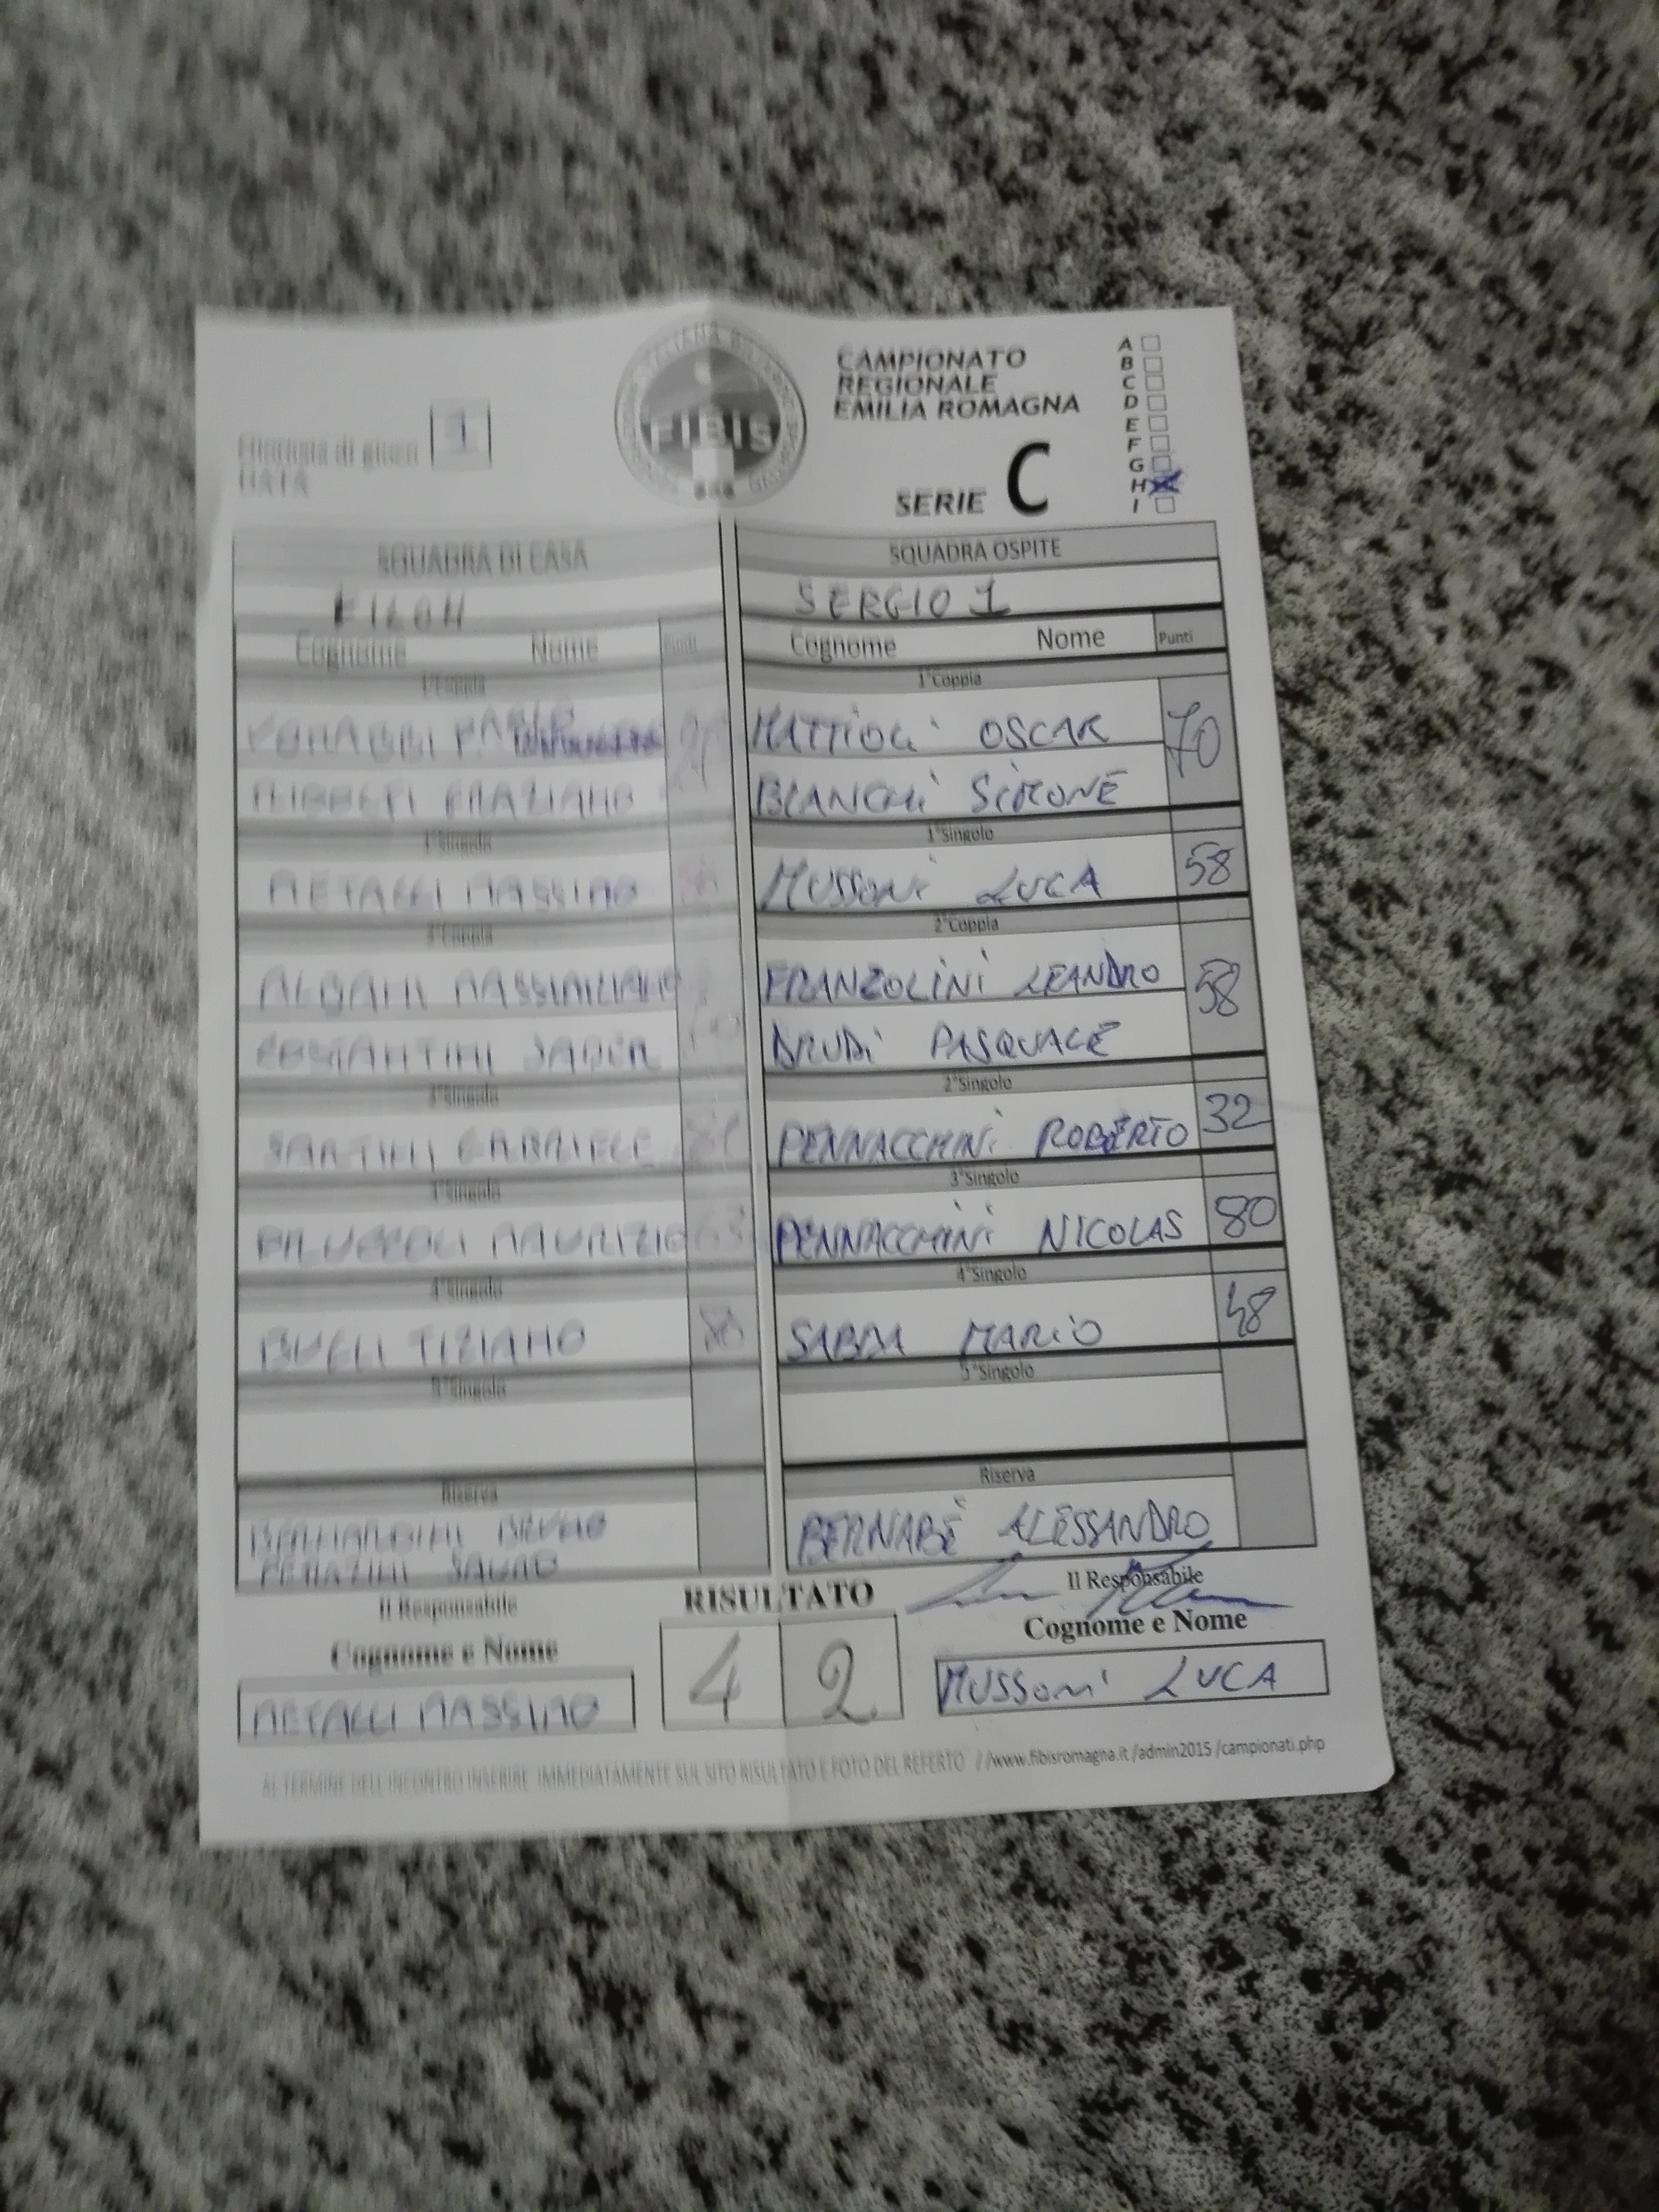 Giornata di gioco 1
DATA
FIBIS
CAMPIONATO
REGIONALE
EMILIA ROMAGNA
SERIE C
A
B
C
D
E
F
G
H
I
SQUADRA DI CASA
SQUADRA OSPITE
SERGIO 1
Cognome Nome Punti
Cognome Nome Punti
1°Coppia
1°Coppia
MATTIOLI OSCAR 70
BIANCHI SIMONE
1°Singolo
1°Singolo
METALLI MASSIMO
MUSSONI LUCA 58
2°Coppia
2°Coppia
MASSIMILIANO
FRANZOLINI LEANDRO 58
COSTANTINI
DRUDI PASQUALE
2°Singolo
2°Singolo
GABRIELE
PENNACCHINI ROBERTO 32
3°Singolo
3°Singolo
MAURIZIO 63
PENNACCHINI NICOLAS 80
4°Singolo
4°Singolo
TIZIANO 80
SABBA MARIO 48
5°Singolo
5°Singolo
Riserva
Riserva
BERNARDINI BRUNO
BERNABÈ ALESSANDRO
Il Responsabile
RISULTATO
Il Responsabile
Cognome e Nome
Cognome e Nome
METALLI MASSIMO
4 2
MUSSONI LUCA
AL TERMINE DELL'INCONTRO INSERIRE IMMEDIATAMENTE SUL SITO RISULTATO E FOTO DEL REFERTO //www.fibisromagna.it /admin2015 /campionati.php